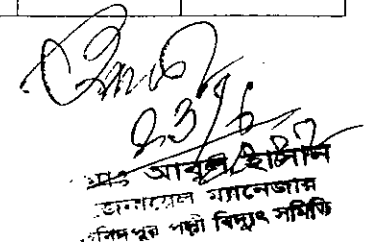 ২৩/৬
মোঃ আবুল হাসান
জেনারেল ম্যানেজার
ফরিদপুর পল্লী বিদ্যুৎ সমিতি